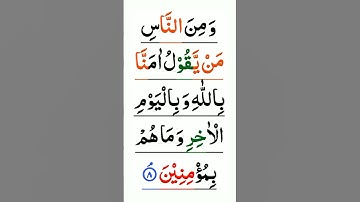 وَمِنَ النَّاسِ
مَنْ يَّقُوْلُ اٰمَنَّا
بِاللّٰهِ وَ بِالْيَوْمِ
الْاٰخِرِ وَمَا هُمْ
بِمُؤْمِنِيْنَ ۘ ۸